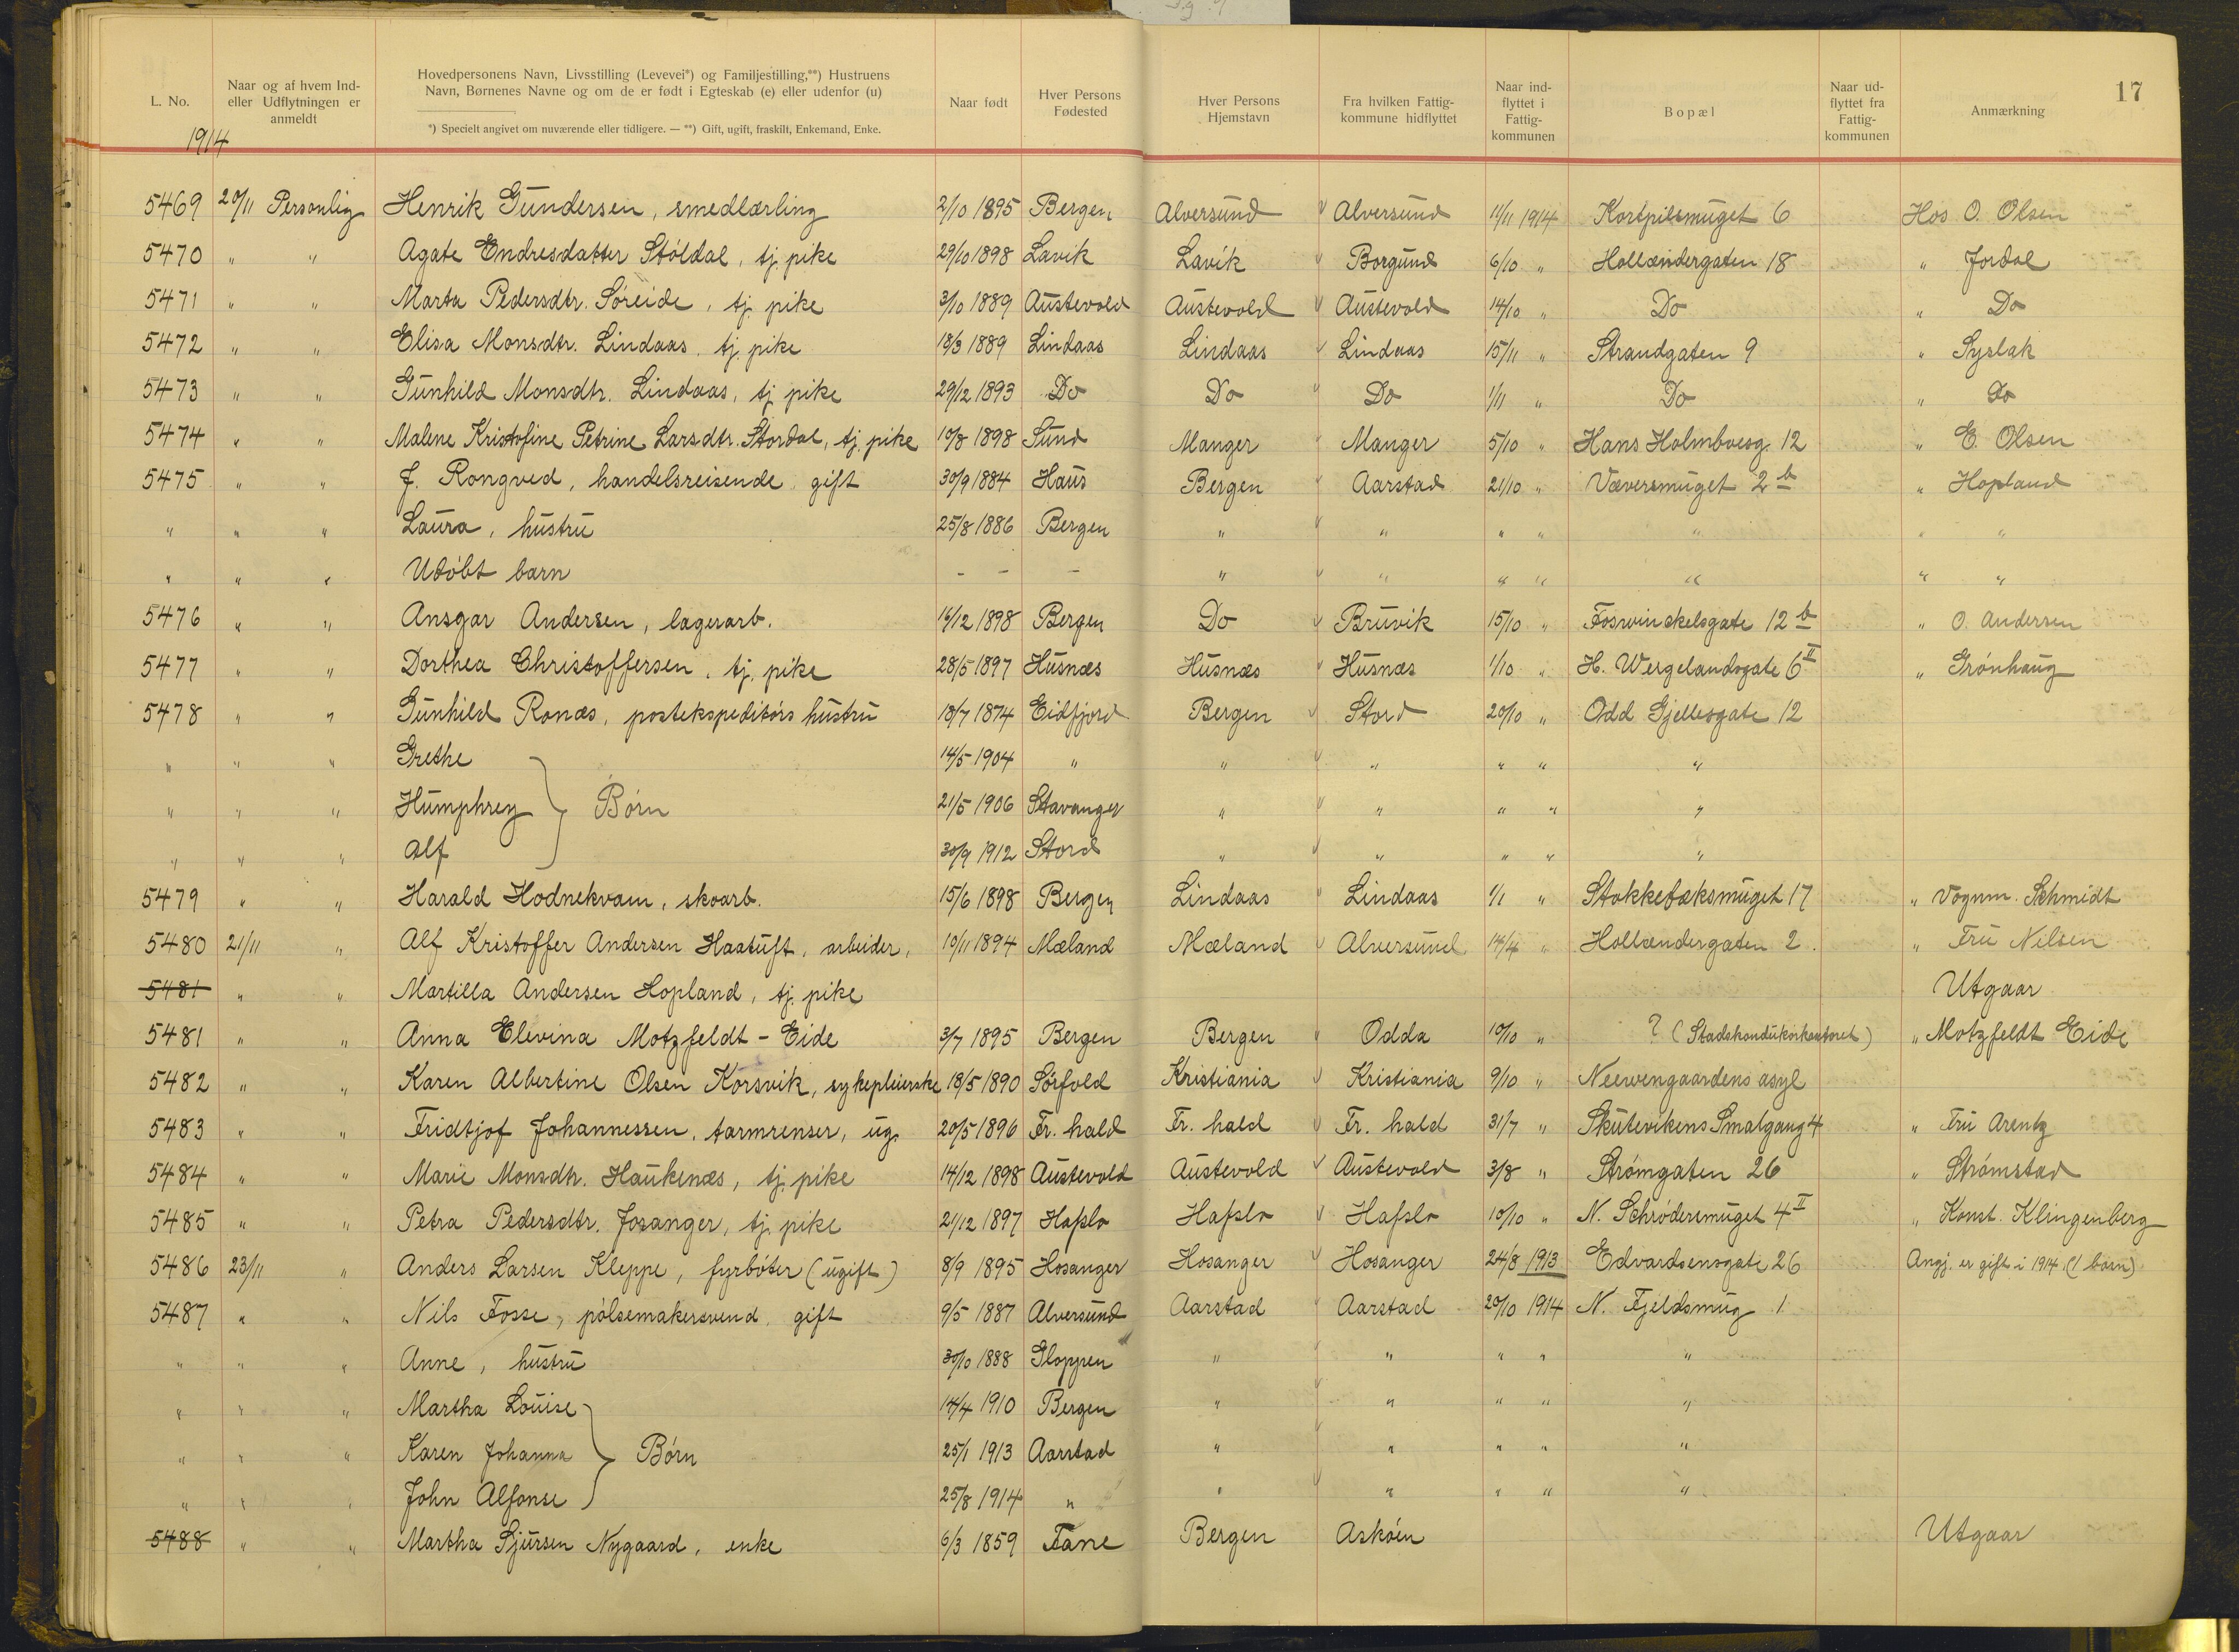 17
L. No.
Naar og af hvem Ind- eller Udflytningen er anmeldt
Hovedpersonens Navn, Livsstilling (Levevei*) og Familjestilling,**) Hustruens Navn, Børnenes Navne og om de er født i Egteskab (e) eller udenfor (u)
*) Specielt angivet om nuværende eller tidligere. — **) Gift, ugift, fraskilt, Enkemand, Enke.
Naar født
Hver Persons Fødested
Hver Persons Hjemstavn
Fra hvilken Fattig- kommune hidflyttet
Naar ind- flyttet i Fattig- kommunen
Bopæl
Naar ud- flyttet fra Fattig- kommunen
Anmærkning
1914
5469 20/11 Personlig Henrik Gundersen, smedlærling 2/10 1895 Bergen Alversund Alversund 11/11 1914 Kortpilsmuget 6 Hos O. Olsen
5470 " " Agate Endresdatter Stöldal, tj. pike 29/10 1898 Lavik Lavik Borgund 6/10 " Hollændergaten 18 " Jordal
5471 " " Marta Pedersdtr. Söreide, tj. pike 3/10 1889 Austevold Austevold Austevold 14/10 " Do " Do
5472 " " Elisa Monsdtr. Lindaas, tj. pike 18/3 1889 Lindaas Lindaas Lindaas 15/11 " Strandgaten 9 " Syslak
5473 " " Gunhild Monsdtr. Lindaas, tj. pike 29/12 1893 Do Do Do 1/11 " Do " Do
5474 " " Malene Kristofine Petrine Larsdtr. Stordal, tj. pike 10/8 1898 Sund Manger Manger 5/10 " Hans Holmboesg. 12 " E. Olsen
5475 " " J. Rongved, handelsreisende, gift 30/9 1884 Haus Bergen Aarstad 21/10 " Væversmuget 2 b " Hopland
" " " Laura, hustru 25/8 1886 Bergen " " " " " " "
" " " Udöbt barn - - - " " " " " " "
5476 " " Ansgar Andersen, lagerarb. 16/12 1898 Bergen Do Bruvik 15/10 " Fosswinckelsgate 12 b " O. Andersen
5477 " " Dorthea Christoffersen, tj. pike 28/5 1897 Husnæs Husnæs Husnæs 1/10 " H. Wergelandsgate 6 II " Grönhaug
5478 " " Gunhild Ronæs, postekspeditörs hustru 18/7 1874 Eidfjord Bergen Stord 20/10 " Odd Gjellesgate 12
" " " Grethe 14/5 1904 " " " " " "
" " " Humphrey } Börn 21/5 1906 Stavanger " " " " "
" " " Alf 30/9 1912 Stord " " " " "
5479 " " Harald Hodnekvam, skoarb. 15/6 1898 Bergen Lindaas Lindaas 1/1 " Stokkebæksmuget 17 " Vognm. Schmidt
5480 21/11 " Alf Kristoffer Andersen Haatuft, arbeider, 19/11 1894 Mæland Mæland Alversund 14/4 " Hollændergaten 2. " Fru Nilsen
5481 " " Martilla Andersen Hopland, tj. pike Utgaar
5481 " " Anna Elevina Motzfeldt - Eide 3/7 1895 Bergen Bergen Odda 10/10 " ? (Stadskonduktörkontoret) " Motzfeldt Eide
5482 " " Karen Albertine Olsen Korsvik, sykepleierske 18/5 1890 Sörfold Kristiania Kristiania 9/10 " Neevengaardens asyl
5483 " " Fridtjof Johannessen, tarmrenser, ug. 20/5 1896 Fr. hald Fr. hald Fr. hald 31/7 " Skutevikens Smalgang 4 " Fru Arentz
5484 " " Marie Monsdtr. Haukenæs, tj. pike 14/12 1898 Austevold Austevold Austevold 3/8 " Strömgaten 26 " Strömstad
5485 " " Petra Pedersdtr. Josanger, tj. pike 21/12 1897 Hafslo Hafslo Hafslo 10/10 " N. Schrödersmuget 4 II " Konst. Klingenberg
5486 23/11 " Anders Larsen Kleppe, fyrböter (ugift) 8/9 1895 Hosanger Hosanger Hosanger 24/8 1913 Edvardsensgate 26 Angj. er gift i 1914 (1 barn)
5487 " " Nils Fosse, pölsemakersvend, gift 9/5 1887 Alversund Aarstad Aarstad 20/10 1914 N. Fjeldsmug 1
" " " Anne, hustru 30/10 1888 Gloppen " " " " "
" " " Martha Louise 14/4 1910 Bergen " " " " "
" " " Karen Johanna } Börn 25/1 1913 Aarstad " " " " "
" " " John Alfonse 25/8 1914 " " " " " "
5488 " " Martha Sjursen Nygaard, enke 6/3 1859 Fane Bergen Asköen Utgaar